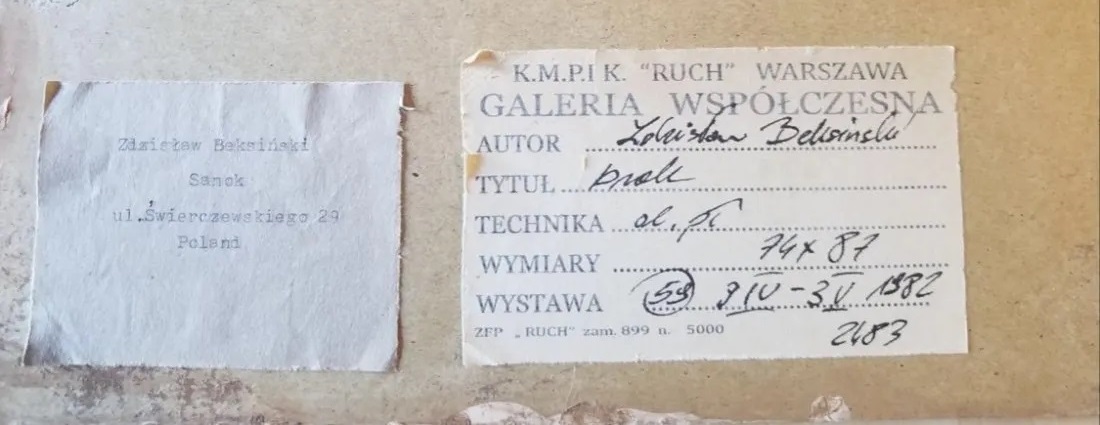 Zdzisław Beksiński
Sanok
ul.Świerczewskiego 29
Poland
K.M.P.I K. "RUCH" WARSZAWA
GALERIA WSPÓŁCZESNA
AUTOR Zdzisław Beksiński
TYTUŁ
TECHNIKA ol. pł
WYMIARY 74 x 87
WYSTAWA 59 9 IV - 3 V 1982
ZFP „RUCH" zam. 899 n. 5000
2483